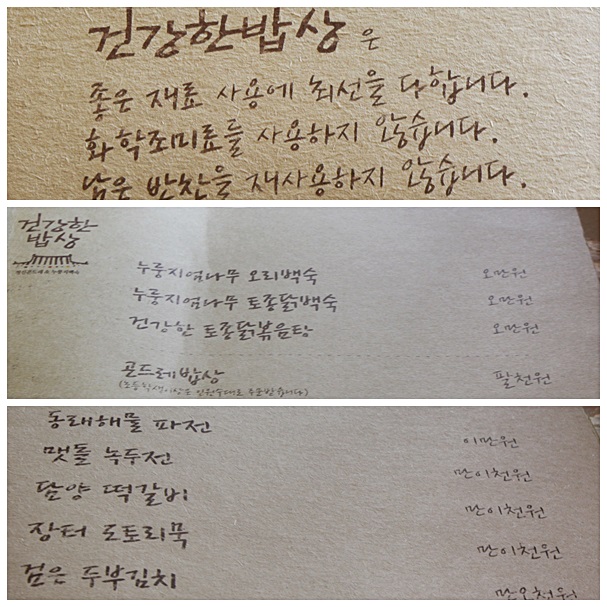 건강한밥상은
좋은 재료 사용에 최선을 다합니다.
화학조미료를 사용하지 않습니다.
남은 반찬을 재사용하지 않습니다.
건강한
밥상
누룽지엄나무 오리백숙 오만원
누룽지엄나무 토종닭백숙 오만원
건강한 토종닭볶음탕 오만원
곤드레밥상 팔천원
(초등학생이상은 인원수대로 주문받습니다)
동래해물 파전 이만원
맷돌 녹두전 만이천원
담양 떡갈비 만이천원
장터 도토리묵 만이천원
검은 두부김치 만오천원